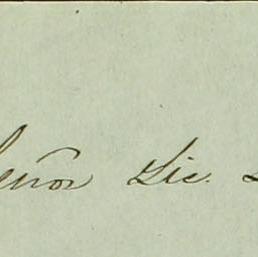 Señor Lic.